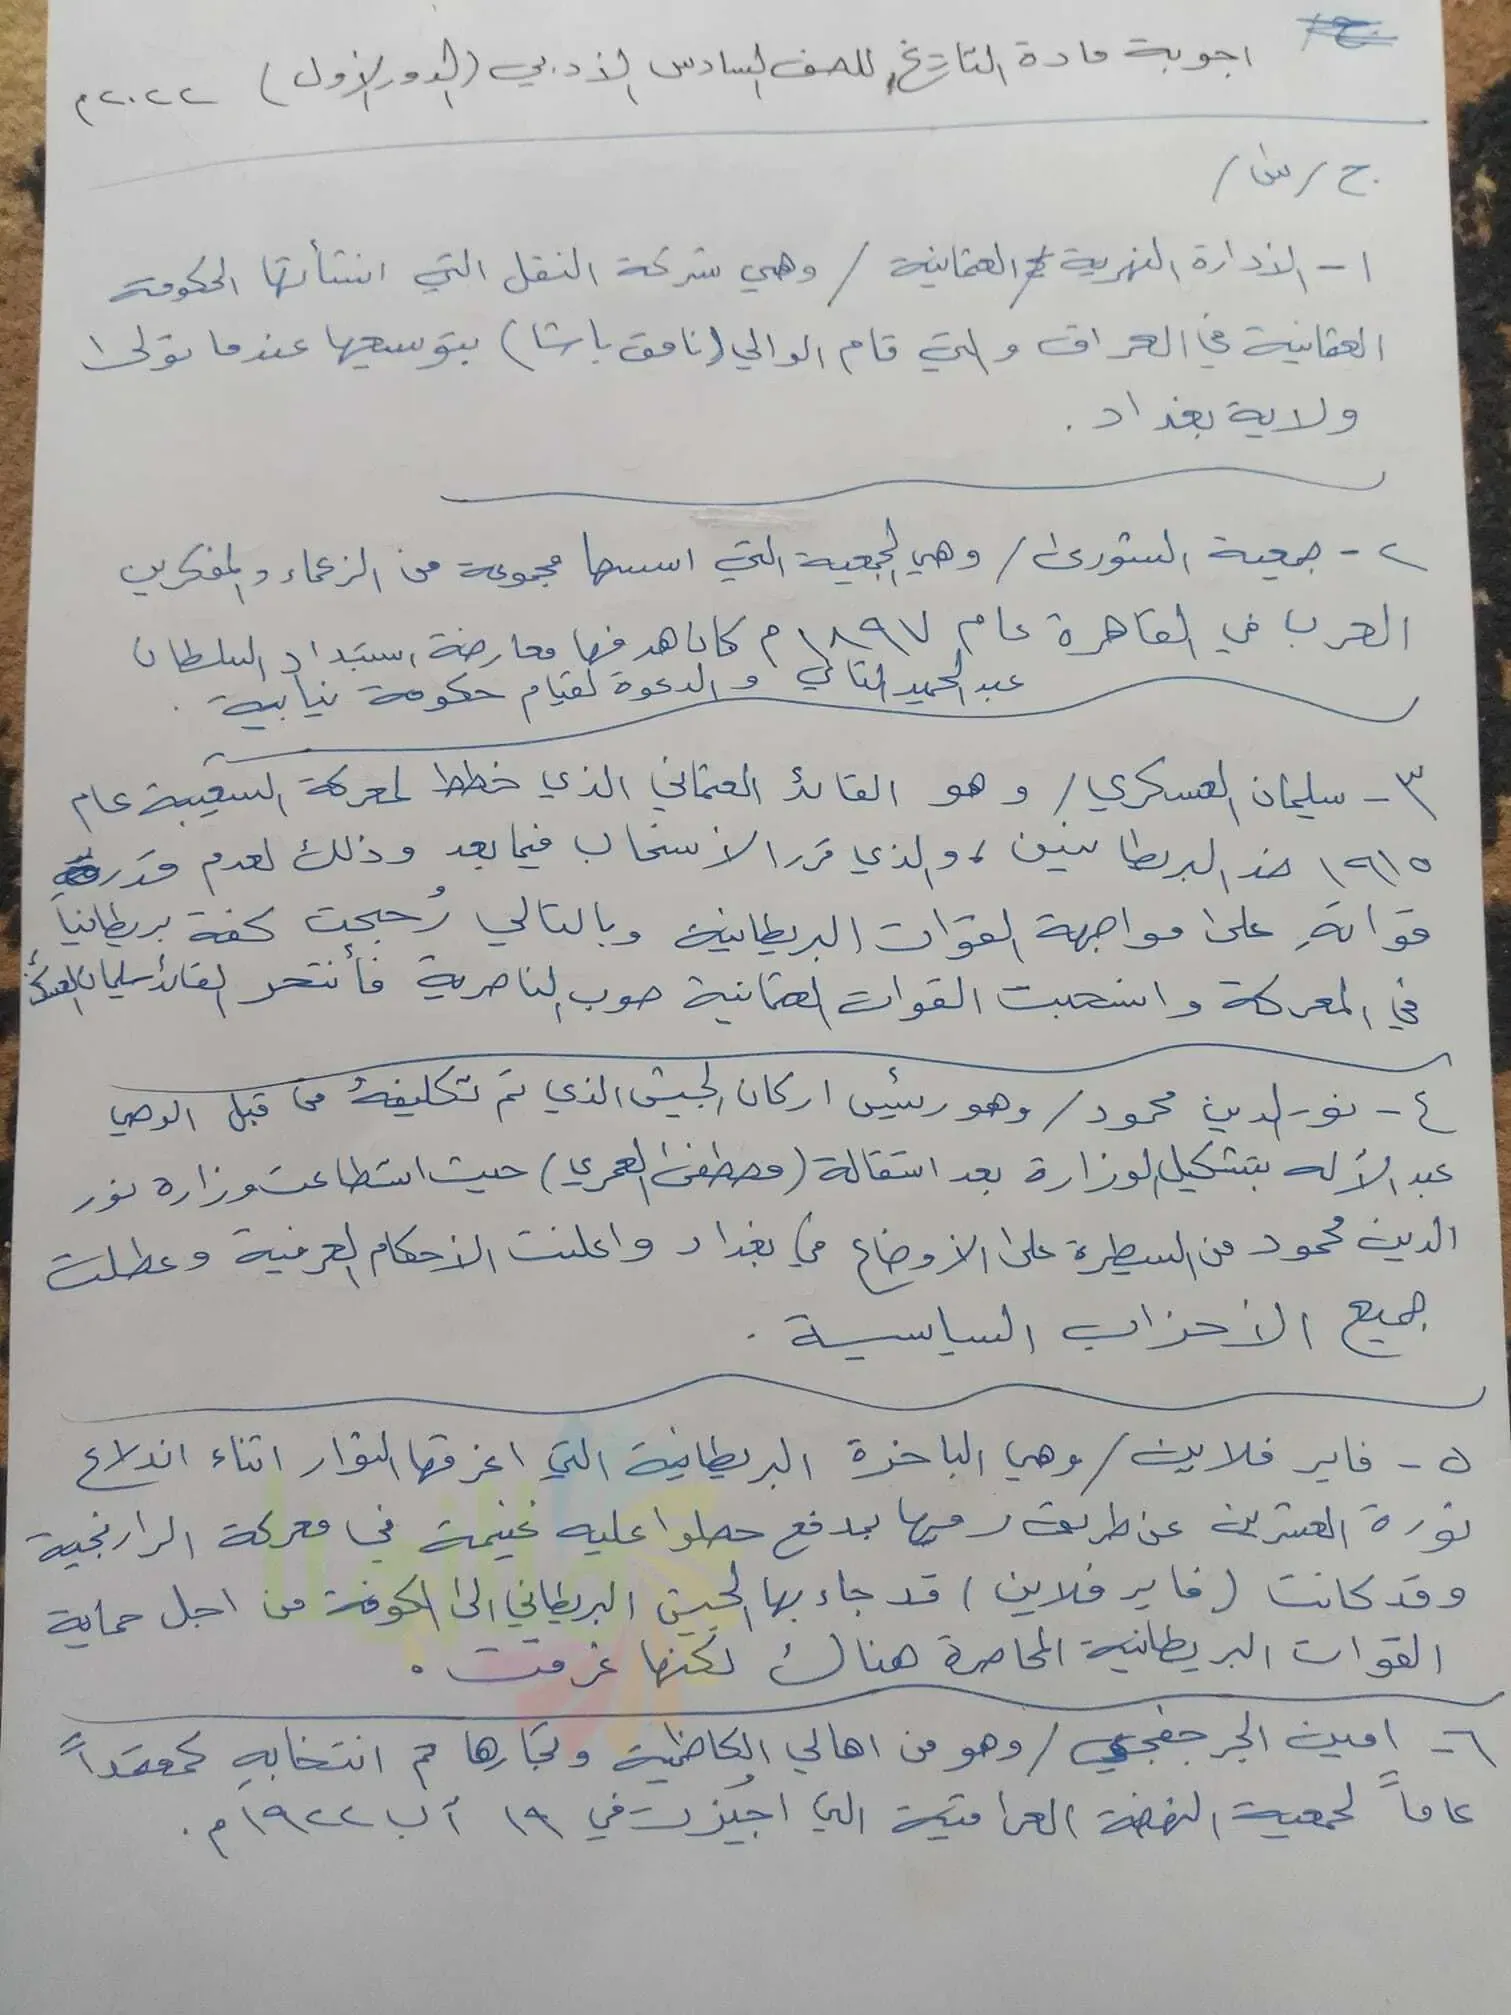 اجوبة مادة التاريخ للصف السادس الأدبي (الدور الأول) ٢٠٢٢م
ج/س١/
١- الادارة النهرية العثمانية / وهي شركة النقل التي انشأتها الحكومة
العثمانية في العراق والتي قام الوالي (نامق باشا) بتوسيعها عندما تولى
ولاية بغداد.
٢- جمعية الشورى / وهي الجمعية التي اسسها مجموعة من الزعماء والمفكرين
العرب في القاهرة عام ١٨٩٧م كان هدفها معارضة استبداد السلطان
عبد الحميد الثاني والدعوة لقيام حكومة نيابية.
٣- سليمان العسكري / وهو القائد العثماني الذي خطط لمعركة الشعيبة عام
١٩١٥ ضد البريطانيين، والذي قرر الأنسحاب فيما بعد وذلك لعدم قدرة
قواتهِ على مواجهة القوات البريطانية وبالتالي رُجحت كفة بريطانيا
في المعركة وانسحبت القوات العثمانية صوب الناصرية فأنتحر القائد سليمان العسكري
٤- نور الدين محمود / وهو رئيس اركان الجيش الذي تم تكليفهُ من قبل الوصي
عبد الأله بتشكيل الوزارة بعد استقالة (مصطفى العمري) حيث استطاعت وزارة نور
الدين محمود من السيطرة على الأوضاع في بغداد واعلنت الأحكام العرفية وعطلت
جميع الأحزاب السياسية.
٥- فاير فلاين / وهي الباخرة البريطانية التي اغرقها الثوار اثناء اندلاع
ثورة العشرين عن طريق رميها بمدفع حصلوا عليه غنيمة في معركة الرارنجية
وقد كانت (فاير فلاين) قد جاء بها الجيش البريطاني الى الكوفة من اجل حماية
القوات البريطانية المحاصرة هناك لكنها غرقت.
٦- امين الجرجفجي / وهو من اهالي الكاظمية وتجارها تم انتخابهِ كمعتمداً
عاماً لجمعية النهضة العراقية التي اجُيزت في ١٩ آب ١٩٢٢م.